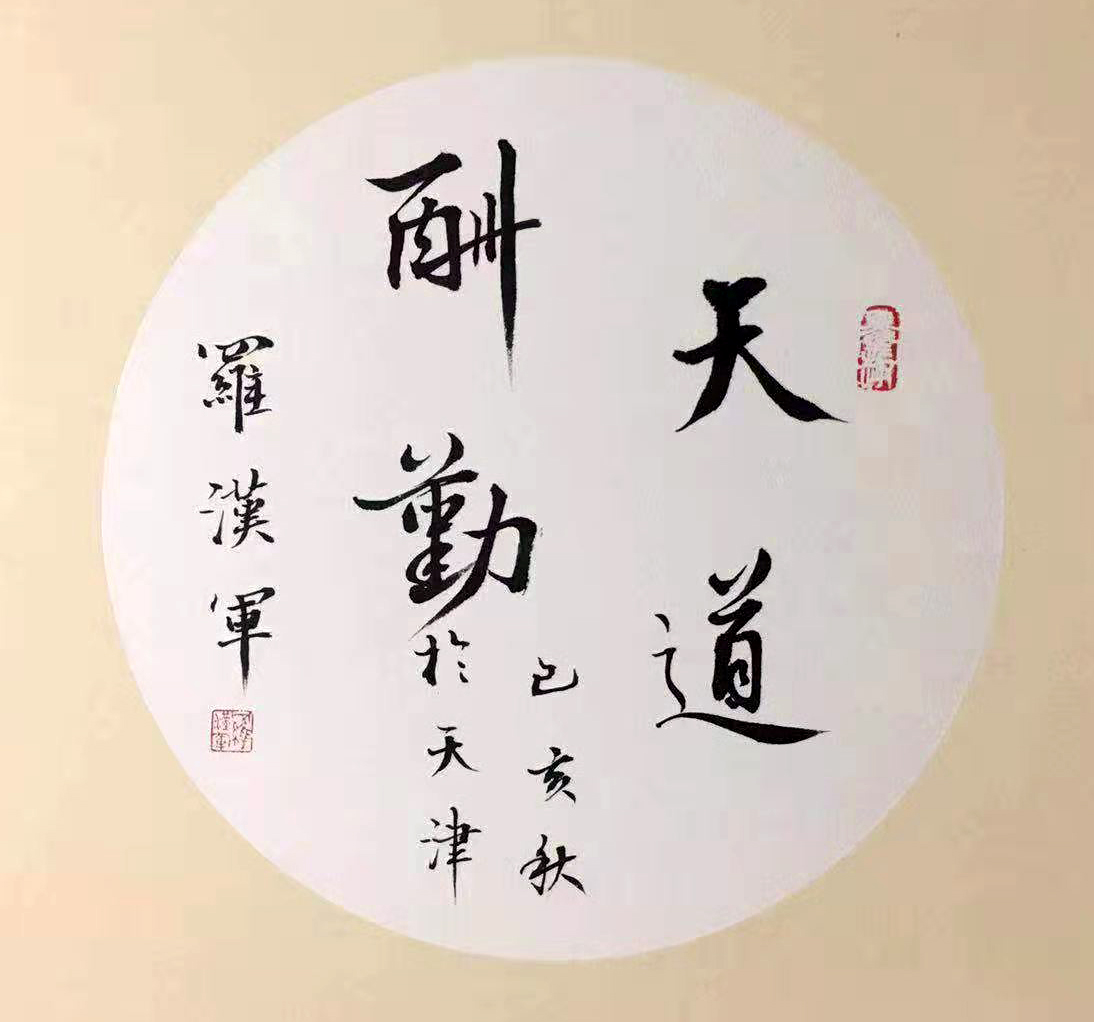 天道
酬勤
己亥秋
於天津
羅漢軍